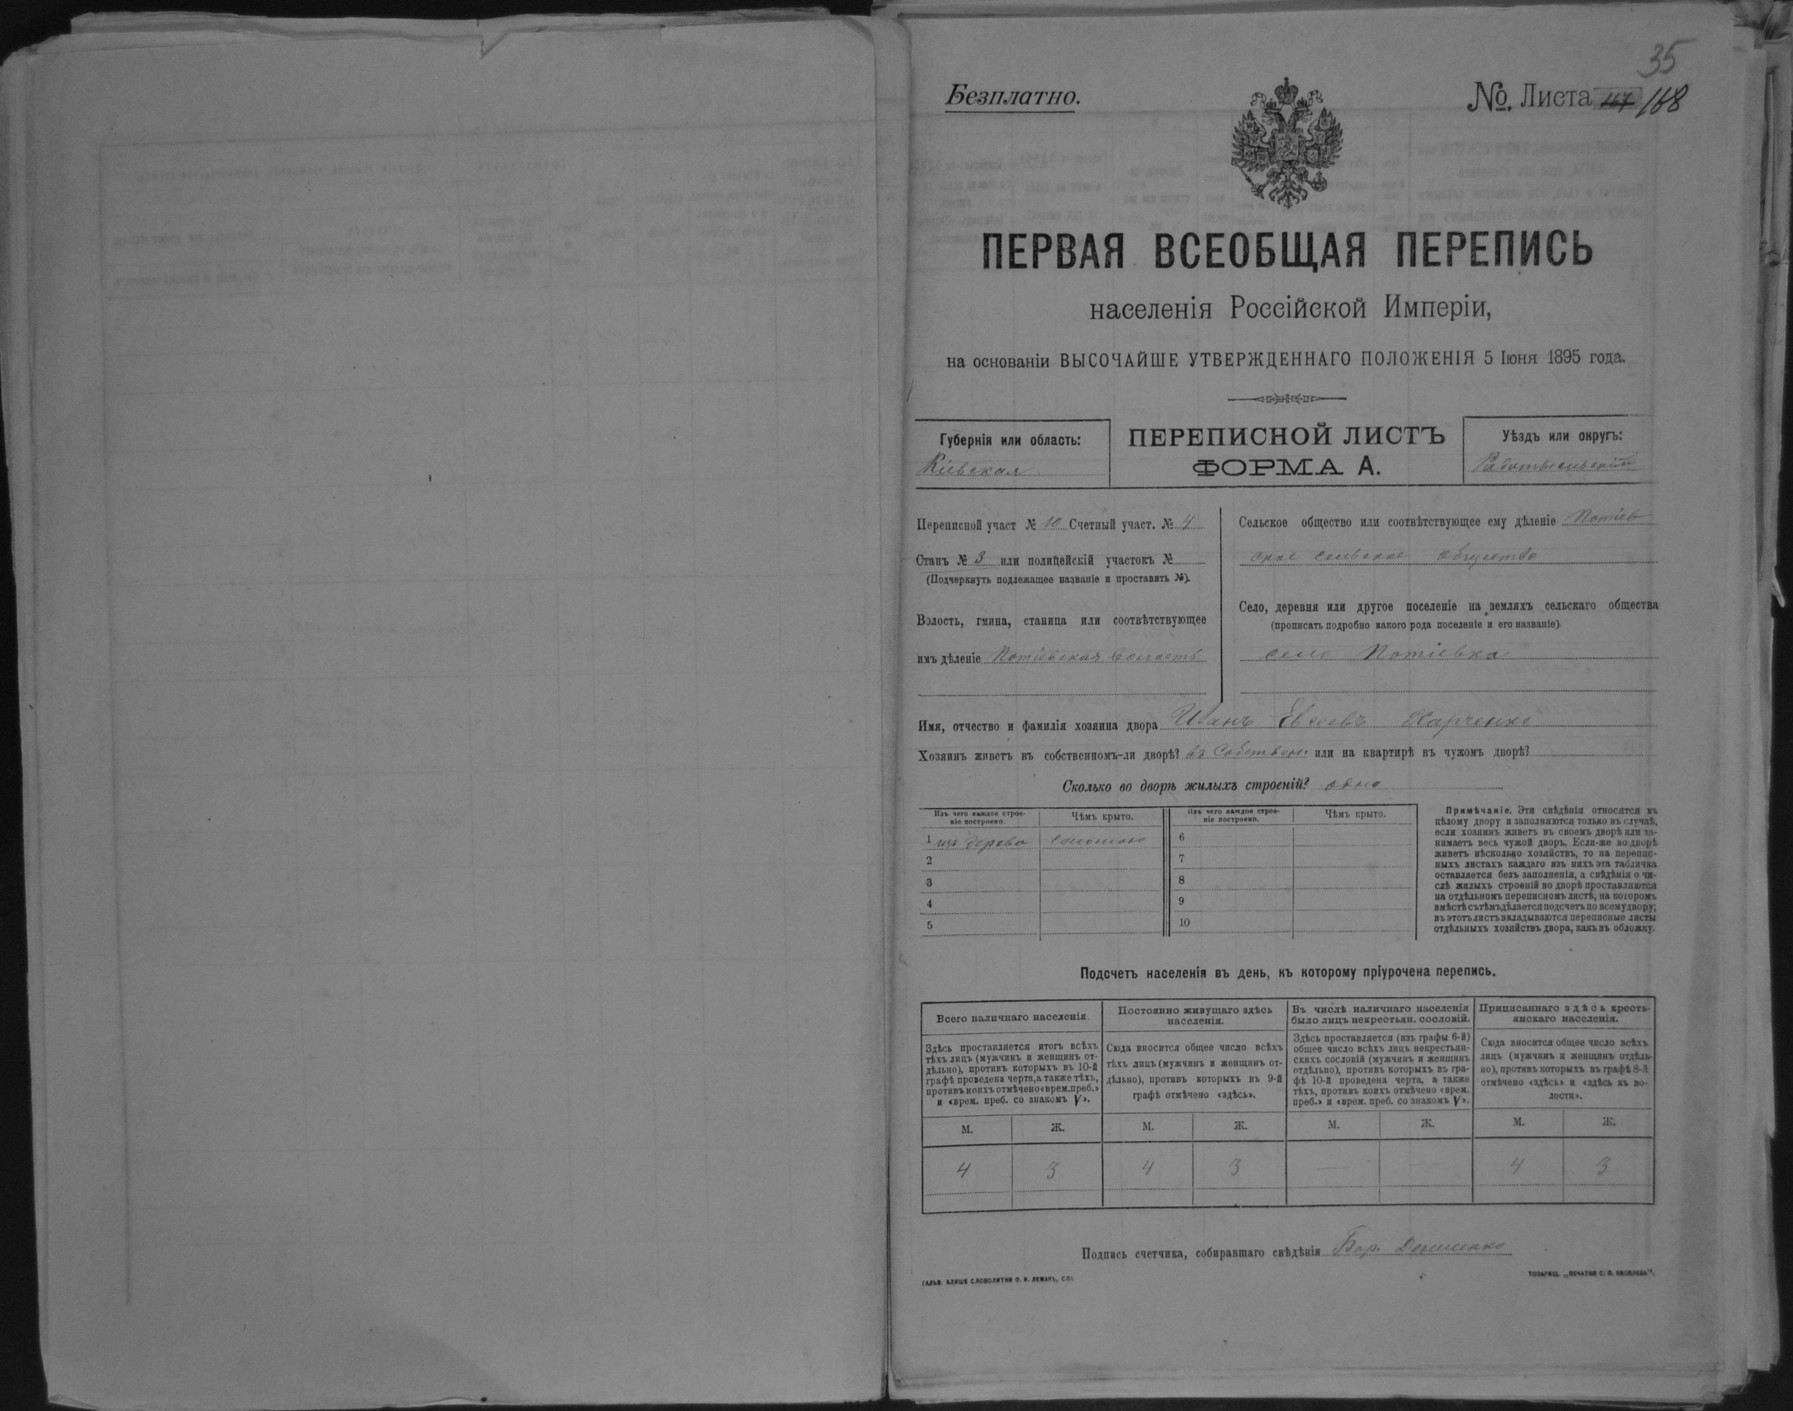 35
Безплатно.
№. Листа 167 168
ПЕРВАЯ ВСЕОБЩАЯ ПЕРЕПИСЬ
населенія Россійской Имперіи,
на основаніи ВЫСОЧАЙШЕ УТВЕРЖДЕННАГО ПОЛОЖЕНІЯ 5 Іюня 1895 года.
Губернія или область:
Кіевская
ПЕРЕПИСНОЙ ЛИСТЪ
ФОРМА А.
Уѣздъ или округъ:
Радомысльскій
Переписной участ № 10 Счетный участ. № 4
Станъ № 3 или полицейскій участокъ №
(Подчеркнуть подлежащее названіе и проставить №).
Волость, гмина, станица или соотвѣтствующее
имъ дѣленіе Потіевская волость
Сельское общество или соотвѣтствующее ему дѣленіе Потіев
ское сельское общество
Село, деревня или другое поселеніе на земляхъ сельскаго общества
(прописать подробно какого рода поселеніе и его названіе)
село Потіевка
Имя, отчество и фамилія хозяина двора Иванъ Евсеевъ Харченко
Хозяинъ живетъ въ собственномъ-ли дворѣ? въ Собствен. или на квартирѣ въ чужомъ дворѣ?
Сколько во дворѣ жилыхъ строеній? одно
Изъ чего каждое строе-
ніе построено.
Чѣмъ крыто.
Изъ чего каждое строе-
ніе построено.
Чѣмъ крыто.
1 изъ дерева соломою
2
3
4
5
6
7
8
9
10
Примѣчаніе. Эти свѣдѣнія относятся къ
цѣлому двору и заполняются только въ случаѣ,
если хозяинъ живетъ въ своемъ дворѣ или за-
нимаетъ весь чужой дворъ. Если-же во дворѣ
живетъ нѣсколько хозяйствъ, то на перепис-
ныхъ листахъ каждаго изъ нихъ эта табличка
оставляется безъ заполненія, а свѣдѣнія о чи-
слѣ жилыхъ строеній во дворѣ проставляются
на отдѣльномъ переписномъ листѣ, на которомъ
вмѣстѣ съ тѣмъ дѣлается подсчетъ по всему двору;
въ этотъ листъ вкладываются переписные листы
отдѣльныхъ хозяйствъ двора, какъ въ обложку.
Подсчетъ населенія въ день, къ которому пріурочена перепись.
Всего наличнаго населенія.
Здѣсь проставляется итогъ всѣхъ
тѣхъ лицъ (мужчинъ и женщинъ от-
дѣльно), противъ которыхъ въ 10-й
графѣ проведена черта, а также тѣхъ,
противъ коихъ отмѣчено «врем. преб.»
и «врем. преб. со знакомъ V».
Постоянно живущаго здѣсь
населенія.
Сюда вносится общее число всѣхъ
тѣхъ лицъ (мужчинъ и женщинъ от-
дѣльно), противъ которыхъ въ 9-й
графѣ отмѣчено «здѣсь».
Въ числѣ наличнаго населенія
было лицъ некрестьян. сословій.
Здѣсь проставляется (изъ графы 6-й)
общее число всѣхъ лицъ некрестьян-
скихъ сословій (мужчинъ и женщинъ
отдѣльно), противъ которыхъ въ гра-
фѣ 10-й проведена черта, а также
тѣхъ, противъ коихъ отмѣчено «врем.
преб.» и «врем. преб. со знакомъ V».
Приписаннаго здѣсь кресть-
янскаго населенія.
Сюда вносится общее число всѣхъ
лицъ (мужчинъ и женщинъ отдѣль-
но), противъ которыхъ въ графѣ 8-й
отмѣчено «здѣсь» и «здѣсь къ во-
лости».
М. Ж. М. Ж. М. Ж. М. Ж.
4 3 4 3 — — 4 3
Подпись счетчика, собиравшаго свѣдѣнія
ГАЛЬВ. КЛИШЕ СЛОВОЛИТНИ О. И. ЛЕМАНЪ, СПБ
ТОВАРИЩ. „ПЕЧАТНЯ С. П. ЯКОВЛЕВА“.